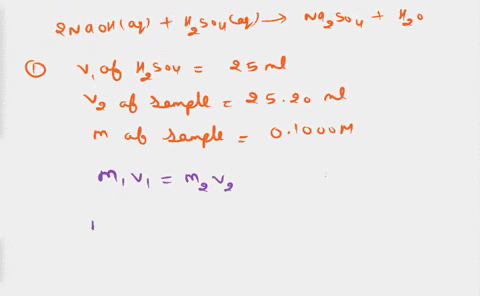 2NaOH(aq) + H₂SO₄(aq) → Na₂SO₄ + H₂O
① V₁ of H₂SO₄ = 25 ml
V₂ of sample = 25.20 ml
m of sample = 0.1000M
m₁ V₁ = m₂ V₂